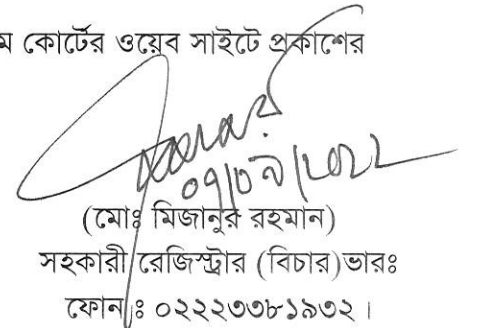 ম কোর্টের ওয়েব সাইটে প্রকাশের
০৭/০৯/২০২২
(মোঃ মিজানুর রহমান)
সহকারী রেজিস্ট্রার (বিচার)ভারঃ
ফোনঃ ০২২২৩৩৮১৯৩২।